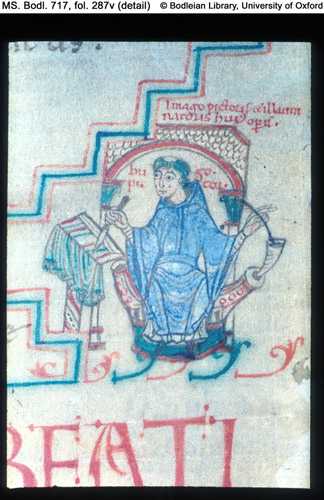 MS. Bodl. 717, fol. 287v (detail) © Bodleian Library, University of Oxford
Imago pictoris & illumi
natoris
hu go
pi ctor
BEATI